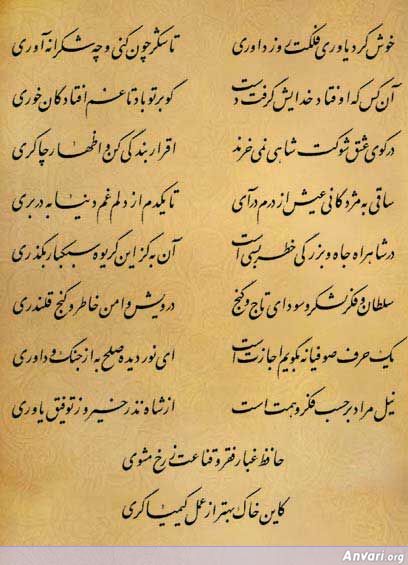 خوش کرد یاوری فلکت روز داوری تا شکر چون کنی و چه شکرانه آوری
آن کس که اوفتاد خدایش گرفت دست گو بر تو باد تا غم افتادگان خوری
در کوی عشق شوکت شاهی نمی‌خرند اقرار بندگی کن و اظهار چاکری
ساقی به مژدگانی عیش از درم درآی تا یکدم از دلم غم دنیا به در بری
در شاهراه جاه و بزرگی خطر بسی است آن به کز این گریوه سبکبار بگذری
سلطان و فکر لشکر و سودای تاج و گنج درویش و امن خاطر و کنج قلندری
یک حرف صوفیانه بگویم اجازت است ای نور دیده صلح به از جنگ و داوری
نیل مراد بر حسب فکر و همت است از شاه نذر خیر و ز توفیق یاوری
حافظ غبار فقر و قناعت ز رخ مشوی
کاین خاک بهتر از عمل کیمیاگری
Anvari.org